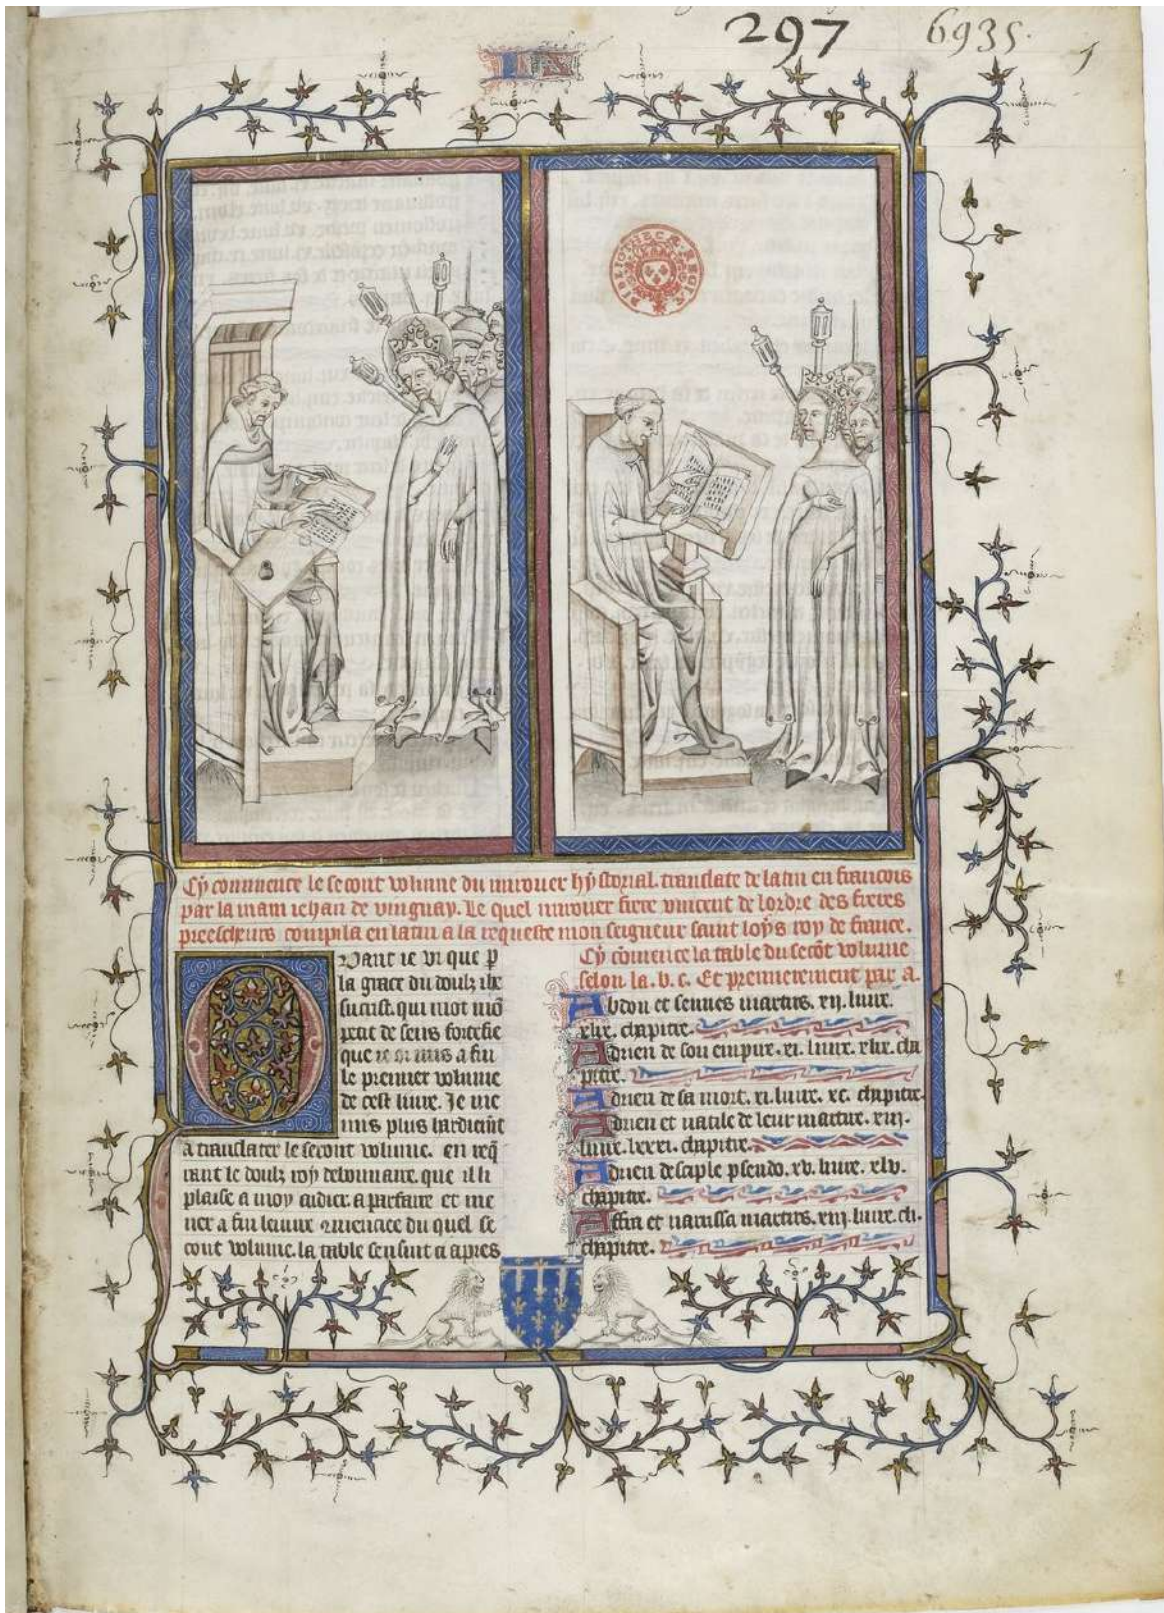 297 6935.
1
BIBLIOTHECÆ REGIÆ
Cy commence le secont volume du mirouer hystorial. translate de latin en francois
par la main iehan de vinguay. Le quel mirouer frere vincent de lordre des freres
preescheurs compila en latin a la requeste mon seigneur saint loys roy de france.
Quant ie vi que p
la grace du doulz ihe
sucrist. qui mot mon
peut de sens fortefie
que ie
le premier volume
de cest liure. Je me
mis plus hardieme̅t
a translater le secont volume. en req̅
rant le doulz roy debonnaire. que il li
plaise a moy aidier. a parfaire et me
ner a fin leuure du quel se
cont volume. la table sensuit ci apres
Cy co̅mence la table du seco̅t volume
selon la. b. c. Et premierement par a.
Abdon et sennes martirs. xij. liure.
xlix. chapitre.
Adrien de son empire. xi. liure. xlix. cha
pitre.
Adrien de sa mort. xi. liure. xc. chapitre.
Adrien et natile de leur martire. xiij.
liure. lxxxi. chapitre.
Adrien desciple pseudo. xv. liure. xlv.
chapitre.
Affin et narussa martirs. xiij. liure. ch.
chapitre.